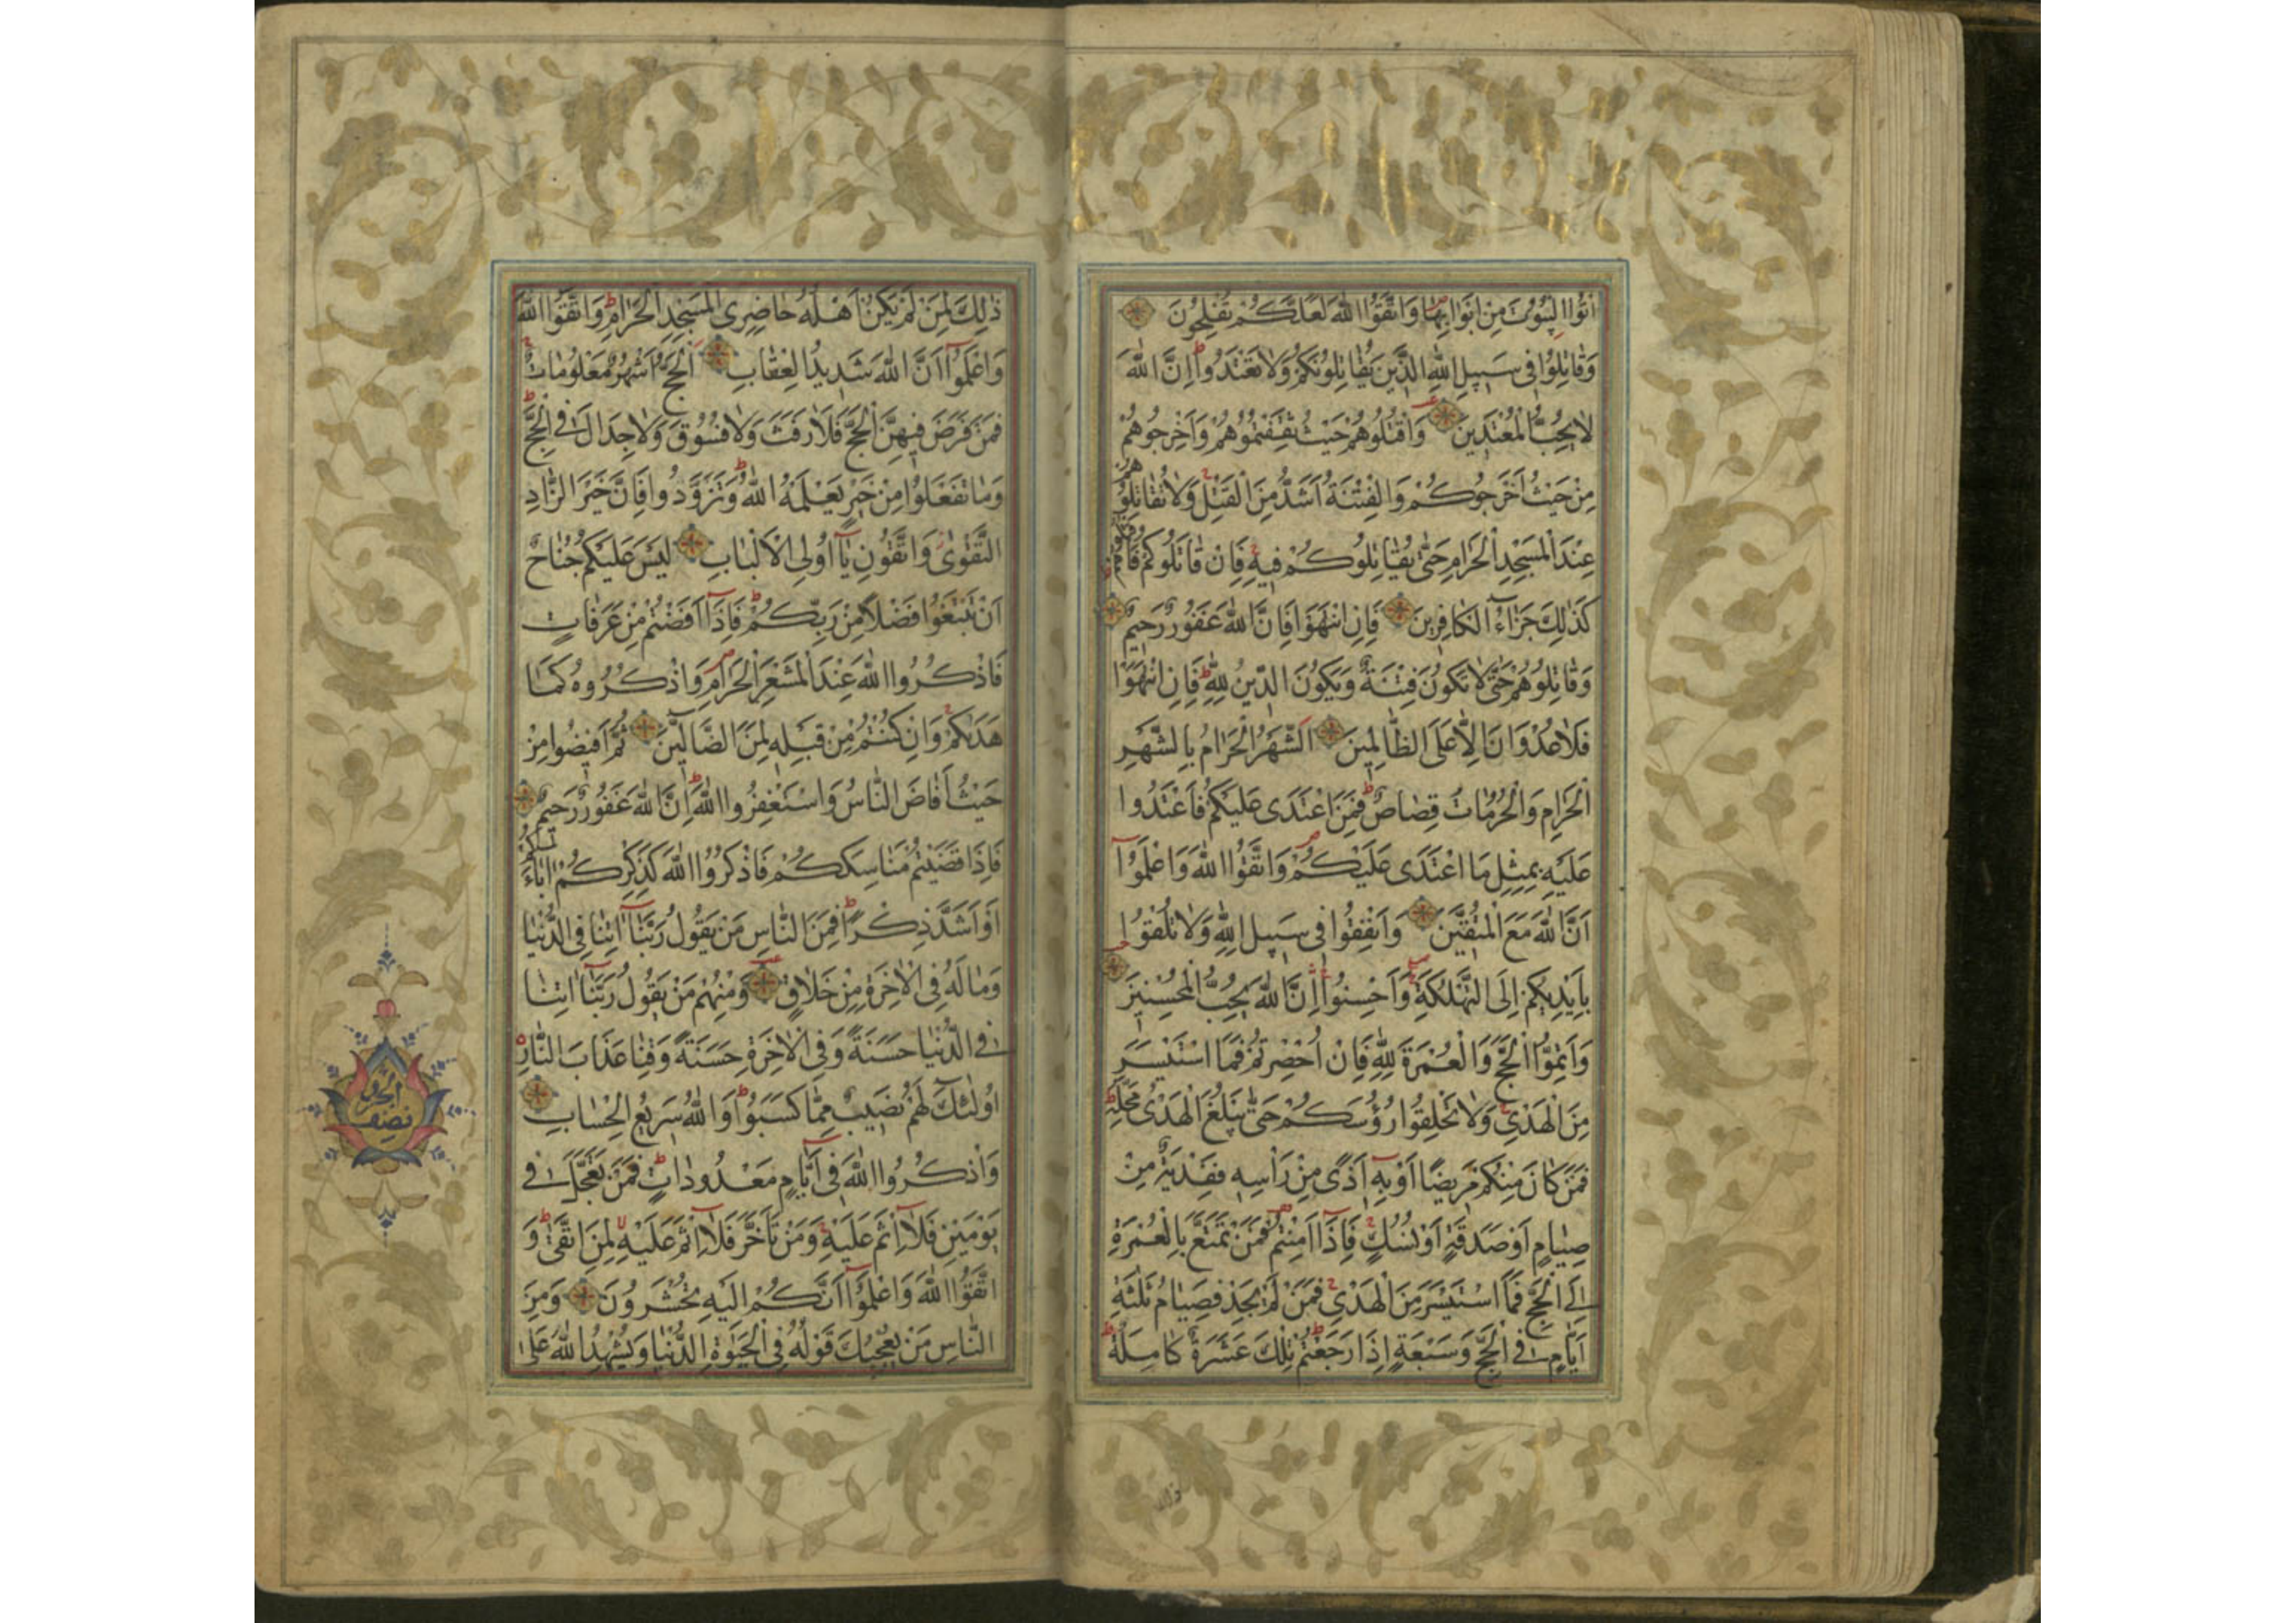 اتُوا الْبُيُوتَ مِنْ اَبْوَابِهَا وَاتَّقُوا اللّٰهَ لَعَلَّكُمْ تُفْلِحُونَ
وَقَاتِلُوا فِى سَبِيلِ اللّٰهِ الَّذِينَ يُقَاتِلُونَكُمْ وَلَا تَعْتَدُوا اِنَّ اللّٰهَ
لَا يُحِبُّ الْمُعْتَدِينَ وَاقْتُلُوهُمْ حَيْثُ ثَقِفْتُمُوهُمْ وَاَخْرِجُوهُمْ
مِنْ حَيْثُ اَخْرَجُوكُمْ وَالْفِتْنَةُ اَشَدُّ مِنَ الْقَتْلِ وَلَا تُقَاتِلُوهُمْ
عِنْدَ الْمَسْجِدِ الْحَرَامِ حَتّٰى يُقَاتِلُوكُمْ فِيهِ فَاِنْ قَاتَلُوكُمْ فَاقْتُلُوهُمْ
كَذٰلِكَ جَزَاءُ الْكَافِرِينَ فَاِنِ انْتَهَوْا فَاِنَّ اللّٰهَ غَفُورٌ رَحِيمٌ
وَقَاتِلُوهُمْ حَتّٰى لَا تَكُونَ فِتْنَةٌ وَيَكُونَ الدِّينُ لِلّٰهِ فَاِنِ انْتَهَوْا
فَلَا عُدْوَانَ اِلَّا عَلَى الظَّالِمِينَ اَلشَّهْرُ الْحَرَامُ بِالشَّهْرِ
الْحَرَامِ وَالْحُرُمَاتُ قِصَاصٌ فَمَنِ اعْتَدٰى عَلَيْكُمْ فَاعْتَدُوا
عَلَيْهِ بِمِثْلِ مَا اعْتَدٰى عَلَيْكُمْ وَاتَّقُوا اللّٰهَ وَاعْلَمُوا
اَنَّ اللّٰهَ مَعَ الْمُتَّقِينَ وَاَنْفِقُوا فِى سَبِيلِ اللّٰهِ وَلَا تُلْقُوا
بِاَيْدِيكُمْ اِلَى التَّهْلُكَةِ وَاَحْسِنُوا اِنَّ اللّٰهَ يُحِبُّ الْمُحْسِنِينَ
وَاَتِمُّوا الْحَجَّ وَالْعُمْرَةَ لِلّٰهِ فَاِنْ اُحْصِرْتُمْ فَمَا اسْتَيْسَرَ
مِنَ الْهَدْىِ وَلَا تَحْلِقُوا رُؤُسَكُمْ حَتّٰى يَبْلُغَ الْهَدْىُ مَحِلَّهُ
فَمَنْ كَانَ مِنْكُمْ مَرِيضًا اَوْ بِهِ اَذًى مِنْ رَاْسِهِ فَفِدْيَةٌ مِنْ
صِيَامٍ اَوْ صَدَقَةٍ اَوْ نُسُكٍ فَاِذَا اَمِنْتُمْ فَمَنْ تَمَتَّعَ بِالْعُمْرَةِ
اِلَى الْحَجِّ فَمَا اسْتَيْسَرَ مِنَ الْهَدْىِ فَمَنْ لَمْ يَجِدْ فَصِيَامُ ثَلٰثَةِ
اَيَّامٍ فِى الْحَجِّ وَسَبْعَةٍ اِذَا رَجَعْتُمْ تِلْكَ عَشَرَةٌ كَامِلَةٌ
ذلك
ذٰلِكَ لِمَنْ لَمْ يَكُنْ اَهْلُهُ حَاضِرِى الْمَسْجِدِ الْحَرَامِ وَاتَّقُوا اللّٰهَ
وَاعْلَمُوا اَنَّ اللّٰهَ شَدِيدُ الْعِقَابِ اَلْحَجُّ اَشْهُرٌ مَعْلُومَاتٌ
فَمَنْ فَرَضَ فِيهِنَّ الْحَجَّ فَلَا رَفَثَ وَلَا فُسُوقَ وَلَا جِدَالَ فِى الْحَجِّ
وَمَا تَفْعَلُوا مِنْ خَيْرٍ يَعْلَمْهُ اللّٰهُ وَتَزَوَّدُوا فَاِنَّ خَيْرَ الزَّادِ
التَّقْوٰى وَاتَّقُونِ يَا اُولِى الْاَلْبَابِ لَيْسَ عَلَيْكُمْ جُنَاحٌ
اَنْ تَبْتَغُوا فَضْلًا مِنْ رَبِّكُمْ فَاِذَا اَفَضْتُمْ مِنْ عَرَفَاتٍ
فَاذْكُرُوا اللّٰهَ عِنْدَ الْمَشْعَرِ الْحَرَامِ وَاذْكُرُوهُ كَمَا
هَدٰيكُمْ وَاِنْ كُنْتُمْ مِنْ قَبْلِهِ لَمِنَ الضَّالِّينَ ثُمَّ اَفِيضُوا مِنْ
حَيْثُ اَفَاضَ النَّاسُ وَاسْتَغْفِرُوا اللّٰهَ اِنَّ اللّٰهَ غَفُورٌ رَحِيمٌ
فَاِذَا قَضَيْتُمْ مَنَاسِكَكُمْ فَاذْكُرُوا اللّٰهَ كَذِكْرِكُمْ اٰبَاءَكُمْ
اَوْ اَشَدَّ ذِكْرًا فَمِنَ النَّاسِ مَنْ يَقُولُ رَبَّنَا اٰتِنَا فِى الدُّنْيَا
وَمَا لَهُ فِى الْاٰخِرَةِ مِنْ خَلَاقٍ وَمِنْهُمْ مَنْ يَقُولُ رَبَّنَا اٰتِنَا
فِى الدُّنْيَا حَسَنَةً وَفِى الْاٰخِرَةِ حَسَنَةً وَقِنَا عَذَابَ النَّارِ
اُولٰئِكَ لَهُمْ نَصِيبٌ مِمَّا كَسَبُوا وَاللّٰهُ سَرِيعُ الْحِسَابِ
وَاذْكُرُوا اللّٰهَ فِى اَيَّامٍ مَعْدُودَاتٍ فَمَنْ تَعَجَّلَ فِى
يَوْمَيْنِ فَلَا اِثْمَ عَلَيْهِ وَمَنْ تَاَخَّرَ فَلَا اِثْمَ عَلَيْهِ لِمَنِ اتَّقٰى وَ
اتَّقُوا اللّٰهَ وَاعْلَمُوا اَنَّكُمْ اِلَيْهِ تُحْشَرُونَ وَمِنَ
النَّاسِ مَنْ يُعْجِبُكَ قَوْلُهُ فِى الْحَيٰوةِ الدُّنْيَا وَيُشْهِدُ اللّٰهَ عَلٰى
نصف